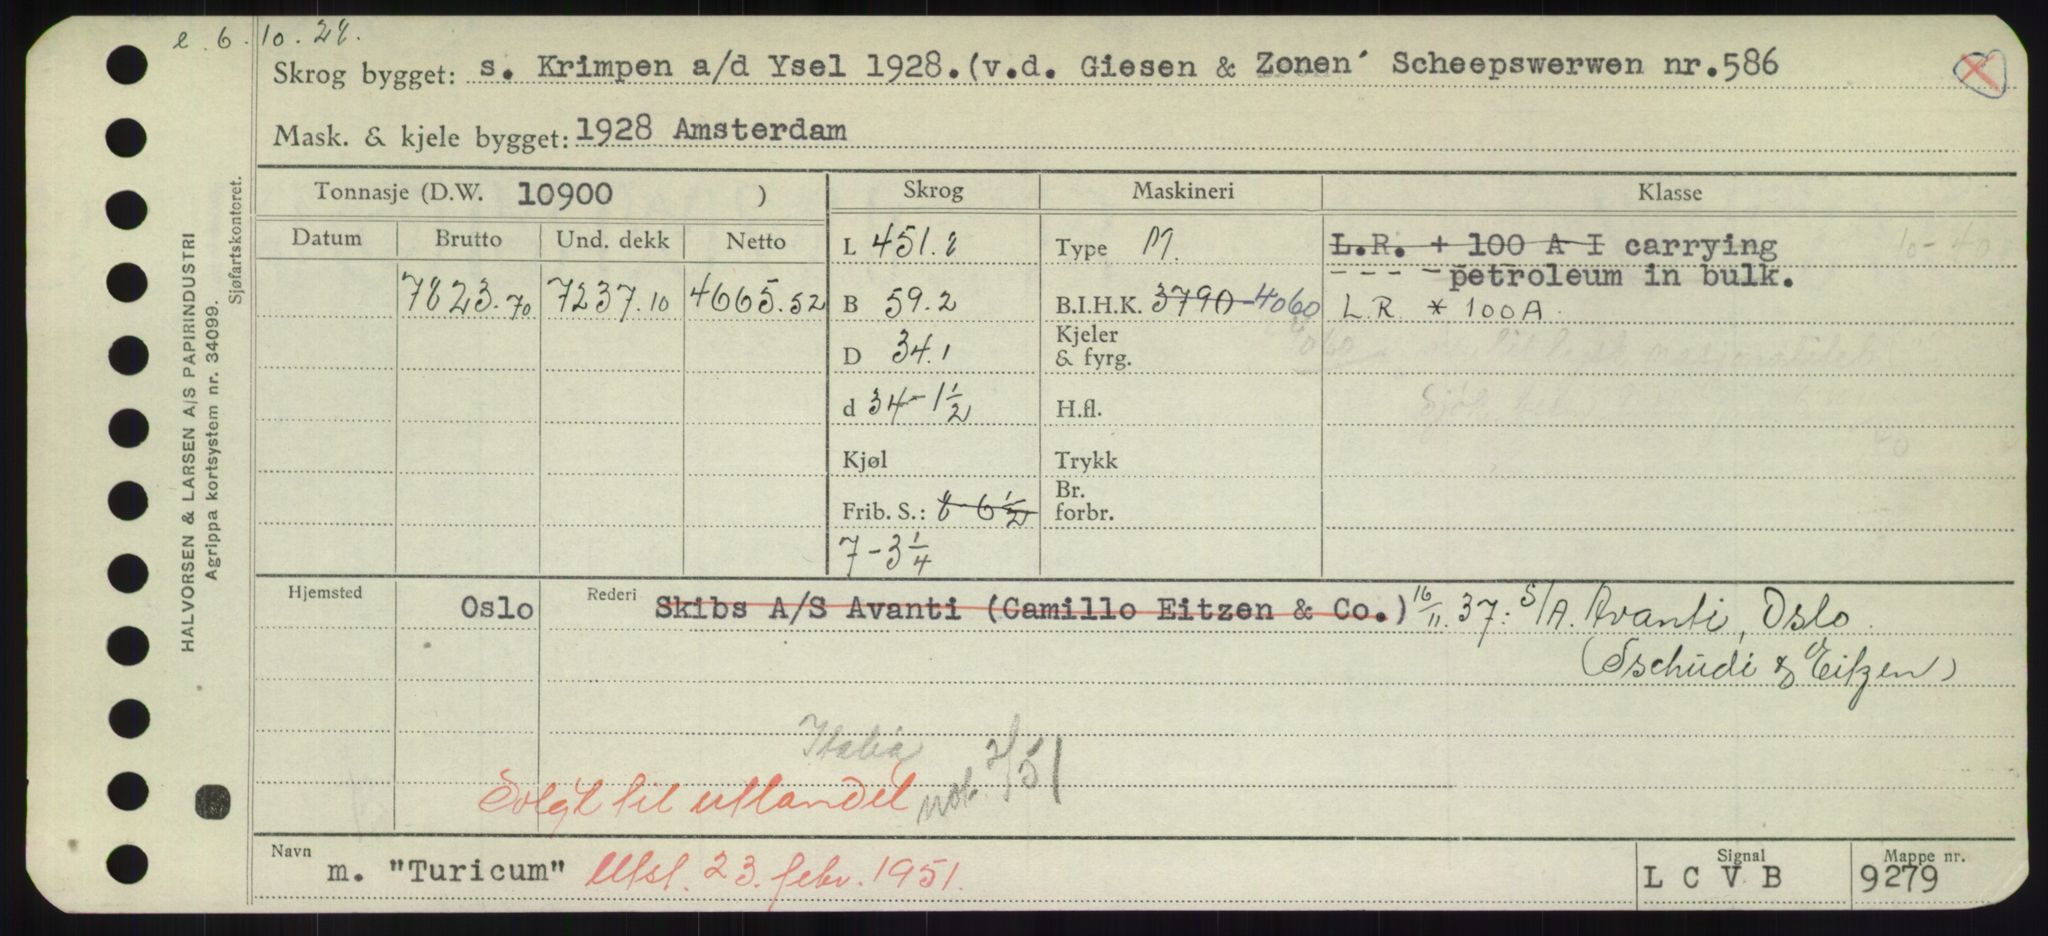 e. 6. 10. 28.
Skrog bygget: s. Krimpen a/d Ysel 1928.(v.d. Giesen & Zonen´ Scheepswerwen nr.586
Mask. & kjele bygget: 1928 Amsterdam
Tonnasje (D.W. 10900 )
Skrog
Maskineri
Klasse
Datum
Brutto
Und. dekk
Netto
7823.70
7237.10
4665.52
L 451.8
B 59.2
D 34.1
d 34-1 1/2
Kjøl
Frib. S.: 8 6 1/2
7-3 1/4
Type M.
B.I.H.K. 3790-4060
Kjeler
& fyrg.
H.fl.
Trykk
Br.
forbr.
L.R. + 100 A I carrying
- - - - petroleum in bulk.
LR * 100A.
Hjemsted
Oslo
Rederi
Skibs A/S Avanti (Camillo Eitzen & Co.) 16/11.37: S/A. Avanti, Oslo.
(Tschudi & Eitzen)
Italia
Solgt til utlandet not. 2/51
Navn
m. "Turicum" Utsl. 23. febr. 1951.
Signal
L C V B
Mappe nr.
9279
HALVORSEN & LARSEN A/S PAPIRINDUSTRI
Agrippa kortsystem nr. 34099.
Sjøfartskontoret.